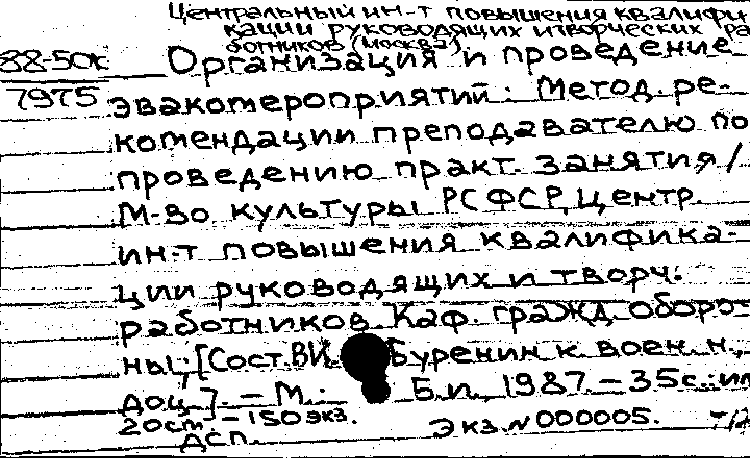 Центральный ин-т повышения квалифи
кации руководящих и творческих ра
ботников (москва)
88-50к Организация и проведение
7975 эвакомероприятий: Метод. ре-
комендации преподавателю по
проведению практ. занятия/
М-во культуры РСФСР, Центр.
ин-т повышения квалифика-
ции руководящих и творч.
работников. Каф. гражд. оборо-
ны; [Сост. В.И. Буренин к. воен. н.,
доц.]. – М.: Б.и., 1987. – 35 с.: ил
20 см. – 150 экз. Экз. N 000005.
ДСП.